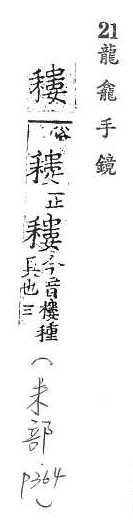 21 龍龕手鏡
耬俗耬正耬今音樓種具也三（耒部 p364）